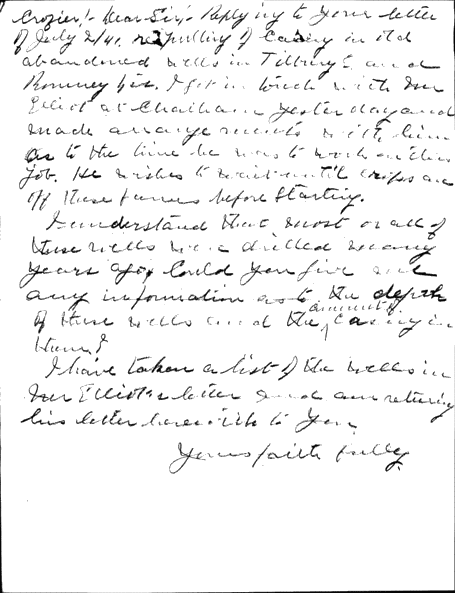 Crozier:- Dear Sir:- Replying to your letter
of July 2/41, re pulling of Casing in old
abandoned wells in Tilbury E. and
Romney I got in touch with Mr
Elliot at Chatham yesterday and
made arrangements with him
as to the time he was to work on this
job. He wishes to wait until crops are
off these farms before starting.
I understand that most or all of
these wells were drilled many
years ago, Could you give me
any information as to the depth
of these wells and the amount of casing in
them?
I have taken a list of the wells in
Mr Elliot's letter and am returning
his letter herewith to you.
Yours faithfully,